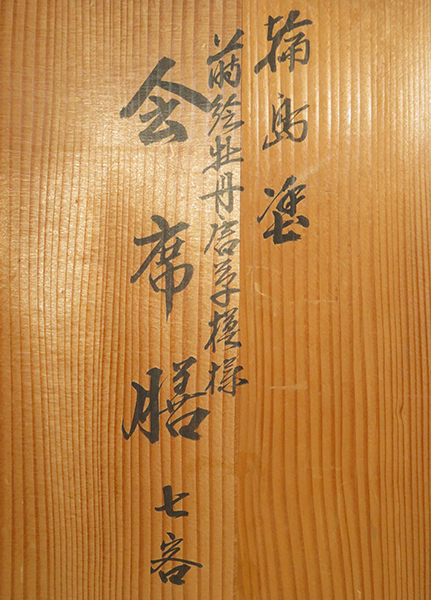 輪島塗
蒔絵牡丹唐草模様
会席膳 七客